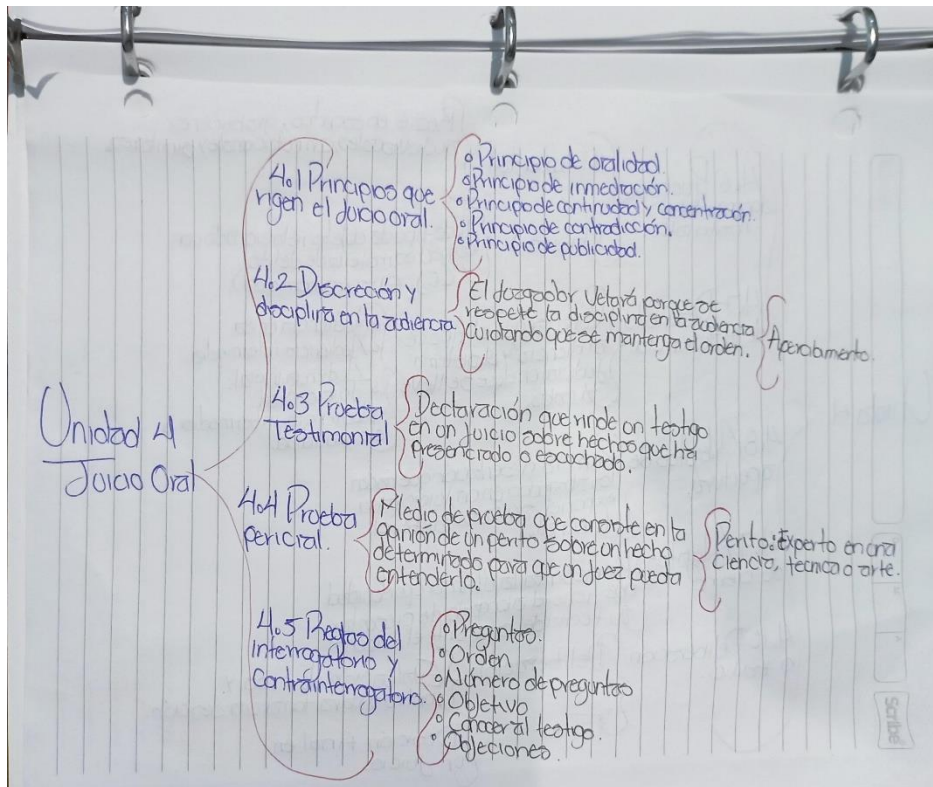 Unidad 4
Juicio Oral
4.1 Principios que
rigen el Juicio oral.
Principio de oralidad.
Principio de inmediación.
Principio de continuidad y concentración.
Principio de contradicción.
Principio de publicidad.
4.2 Discreción y
disciplina en la audiencia
El Juzgador Velará porque se
respete la disciplina en la audiencia
Cuidando que se mantenga el orden.
Apercibimento.
4.3 Prueba
Testimonial
Declaración que rinde un testigo
en un Juicio sobre hechos que ha
presenciado o escuchado.
4.4 Prueba
pericial.
Medio de prueba que consiste en la
opinión de un perito sobre un hecho
determinado para que un Juez pueda
entenderlo.
Perito: Experto en una
ciencia, técnica o arte.
4.5 Reglas del
interrogatorio y
Contrainterrogatorio.
Preguntas.
Orden
Número de preguntas
Objetivo
Conocer al testigo.
Objeciones.
Scribe